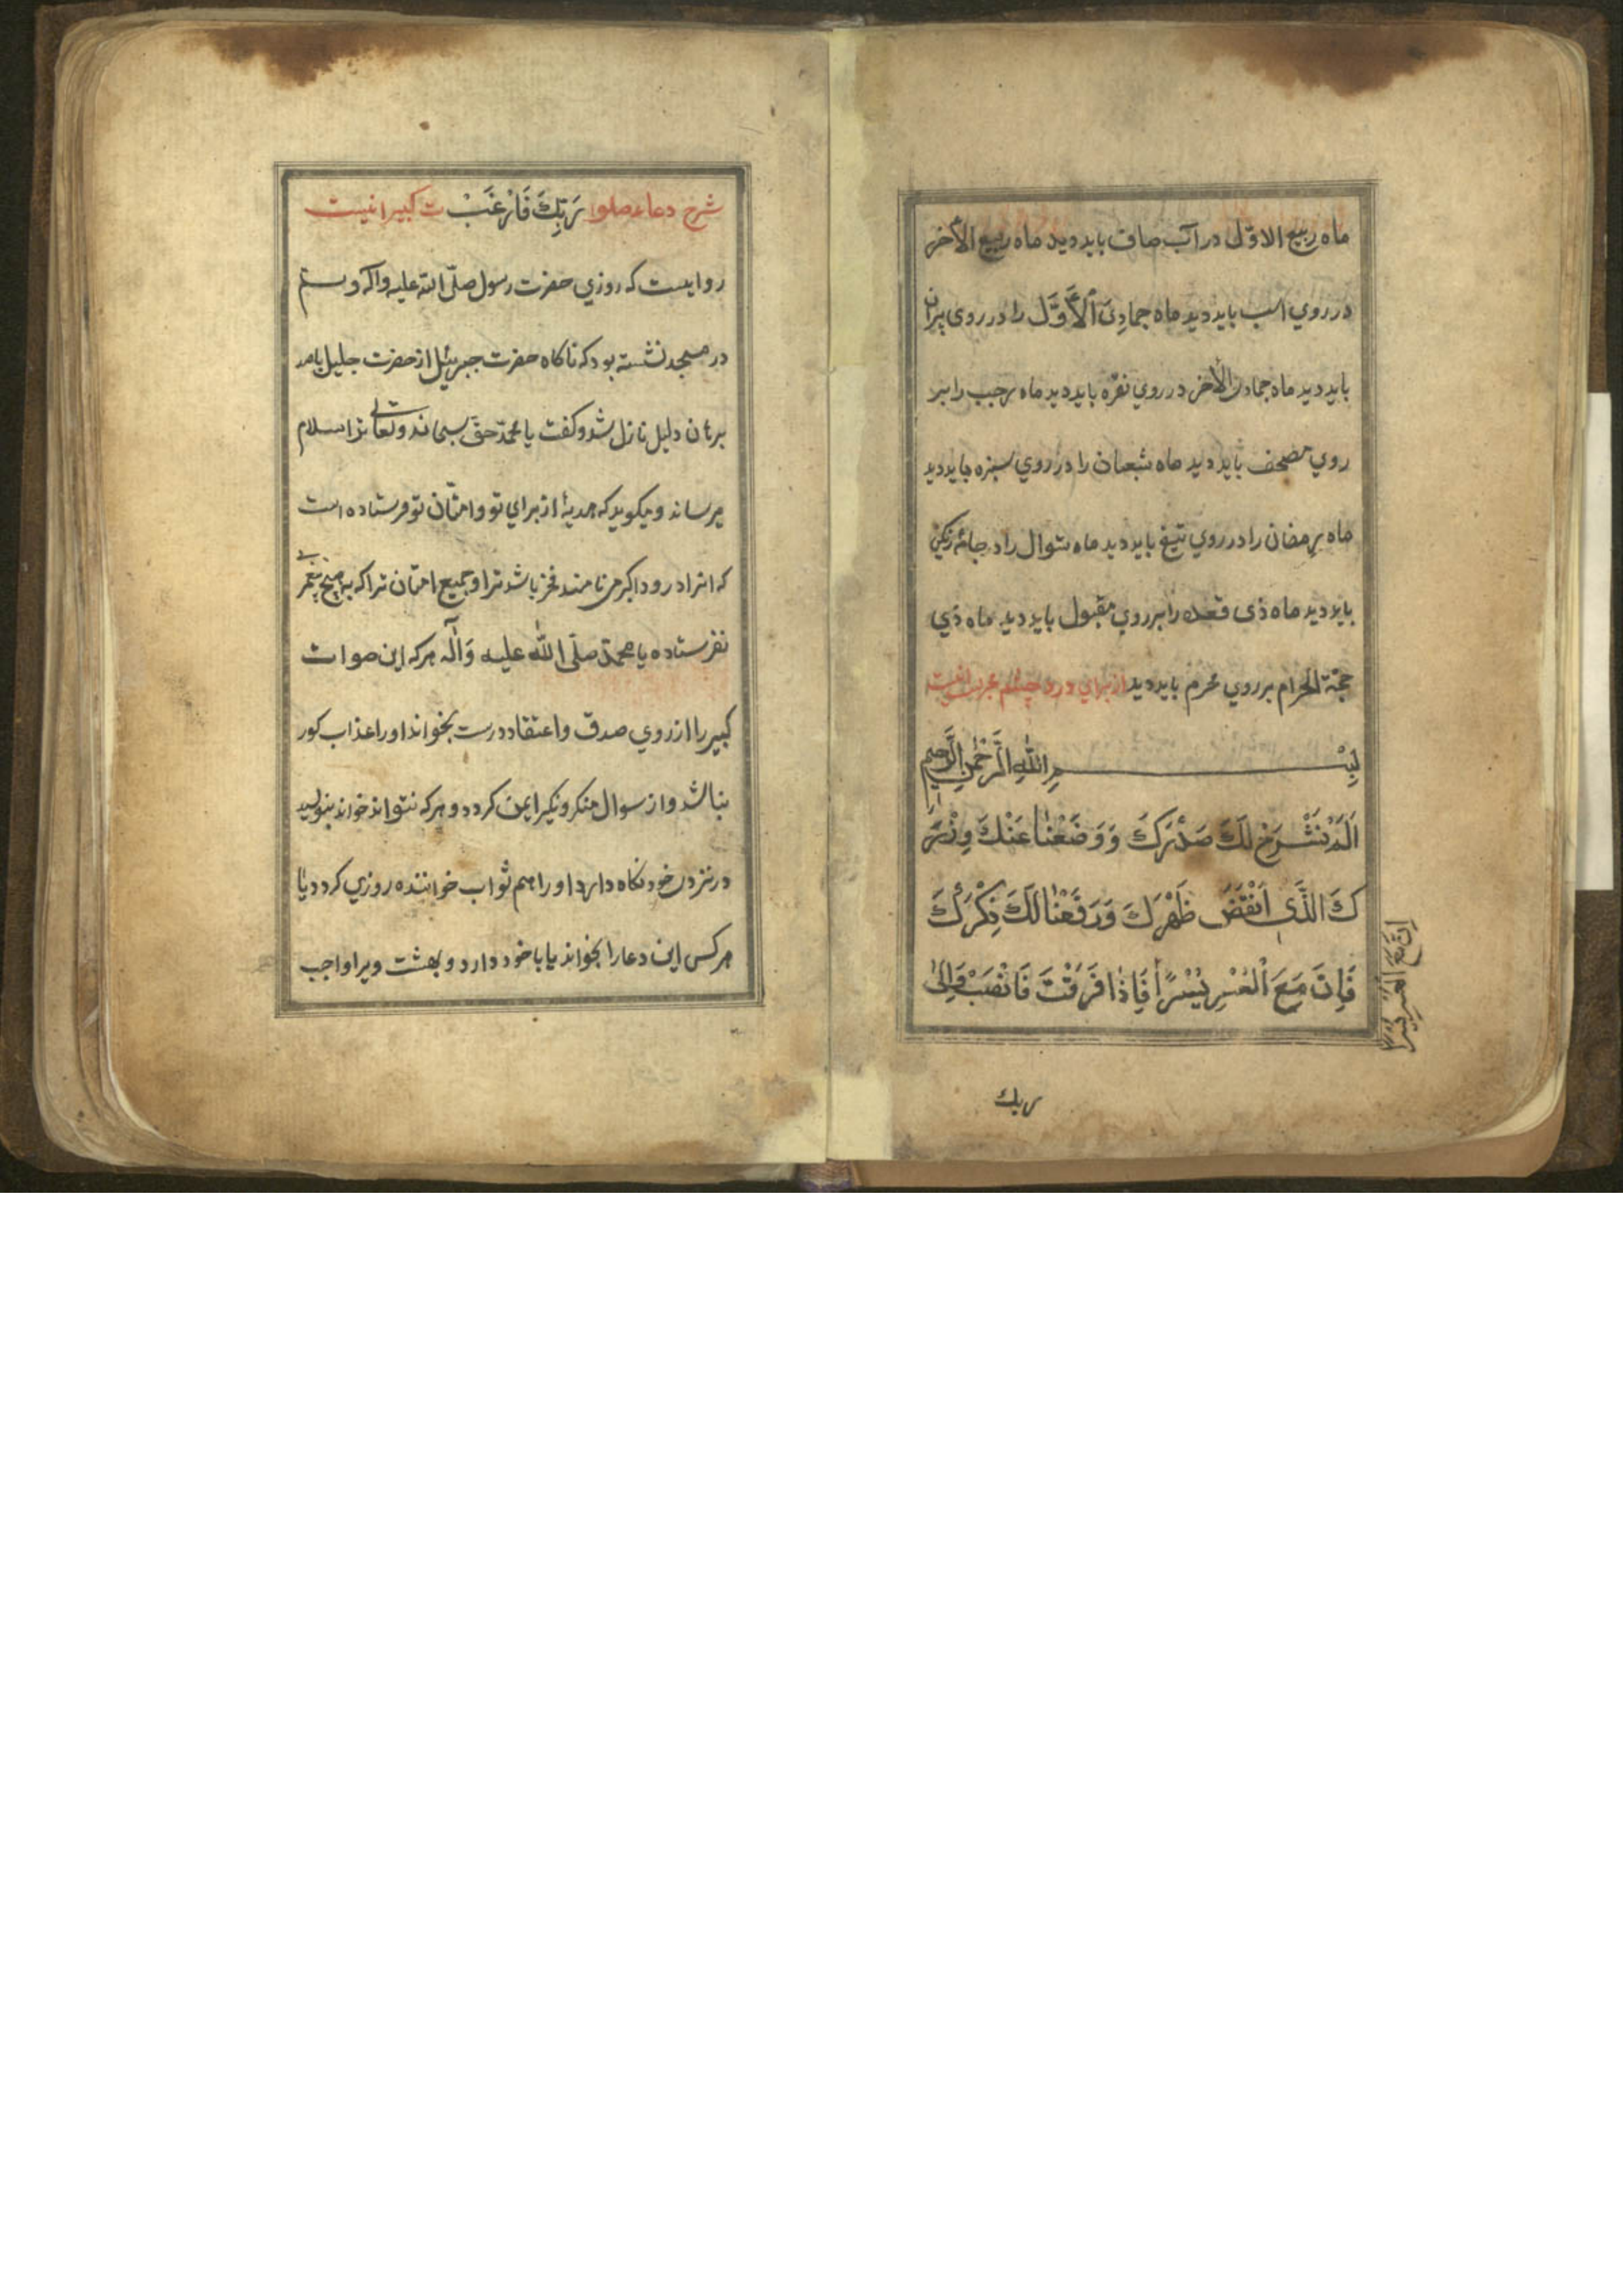 ماه ربیع الاوّل در آب صاف باید دید ماه ربیع الآخر
در روي اسب باید دید ماه جمادِیَ اْلاَوَّل را در روی پیران
باید دید ماه جماد الاخر در روي نقره باید دید ماه رجب را بر
روي مصحف باید دید ماه شعبان را در روي سبزه باید دید
ماه رمضان را در روي تیغ باید دید ماه شوال را در جامۀ رنكین
باید دید ماه ذی قعده را بر روي مقبول باید دید ماه ذي
حجّة الحرام بر روي محرم باید دید از براي درد چشم مجرب است
بِسْمِ اللهِ الرَّحْمٰنِ الرَّحیمِ
اَلَمْ نَشْرَحْ لَكَ صَدْرَكَ وَ وَضَعْنٰا عَنْكَ وِزْرَ
كَ الَّذَّی اَنْقَضَ ظَهْرَكَ وَ رَفَعْنٰا لَكَ ذِكْرَكَ
فَاِنَّ مَعَ اْلعُسْرِ یُسْرًا فَاِذٰا فَرَغْتَ فَانْصَبْ وَاِلیٰ
اِنَّ مَعَ الْعُسْرِ یُسْرًا
ربك
شرح دعاء صلوا رَبِّكَ فَارْغَبْ ت كبیر اینست
روایست كه روزي حضرت رسول صلّی الله علیه و آله و سلّم
در مسجد نشسته بود كه ناكاه حضرت جبرئیل از حضرت جلیل بامر
برهان دلیل نازل شد و كفت یا محمّد حقّ سبحانه و تعالی ترا سلام
میرساند و میكوید كه هدیۀ از براي تو و امتّان تو فرستاده است
كه انرا درود اكبر می نامند فخر باشد ترا و جمیع امتان ترا كه به هیچ پیغمبری
نفرستاده یا محمّد صلّی اللّٰه علیه وَ اٰلٰه هر كه این صوات
كبیر را از روي صدق و اعتقاد درست بخواند اورا عذاب كور
نباشد و از سوال منكر و نكیر ایمن كردد و هر كه نتواند خواند بنویسد
در نزد خود نكاه دارد او را هم ثواب خواننده روزي كردد یا
هر كس این دعا را بخواند یا با خود دارد و بهشت ویرا واجب